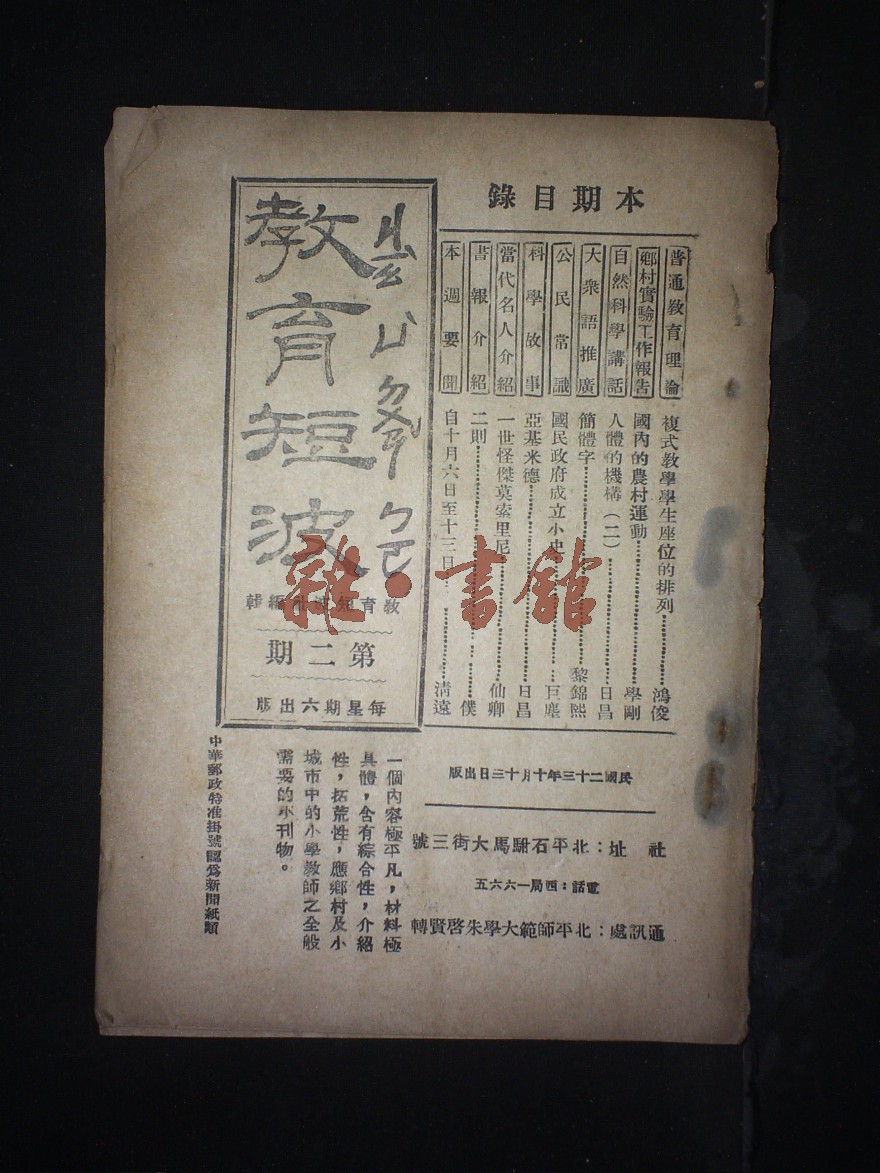 本期目錄
普通教育理論 複式教學學生座位的排列………鴻俊
鄉村實驗工作報告 國內的農村運動………學剛
自然科學講話 人體的機構（二）………日昌
大衆語推廣 簡體字………黎錦熙
公民常識 國民政府成立小史………巨塵
科學故事 亞基米德………日昌
當代名人介紹 一世怪傑莫索里尼………仙卿
書報介紹 二則………僕
本週要聞 自十月六日至十三日………清遠
教育短波
ㄐㄧㄠ ㄩ ㄉㄨㄢ ㄅㄛ
教育短波社編輯
第二期
每星期六出版
民國二十三年十月十三日出版
社址：北平石駙馬大街三號
電話：西局一六六五
通訊處：北平師範大學朱啓賢轉
一個內容極平凡，材料極
具體，含有綜合性，介紹
性，拓荒性，應鄉村及小
城市中的小學教師之全般
需要的小刊物。
中華郵政特准掛號認爲新聞紙類
雜·書館